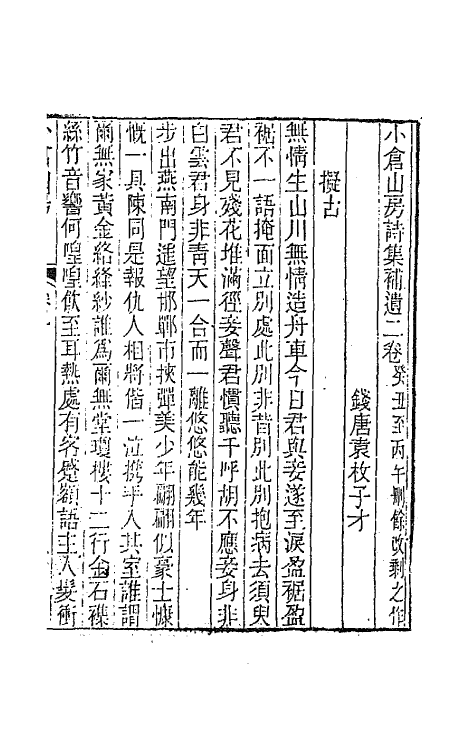 小倉山房詩集補遺二卷癸丑至丙午删餘改剩之作
錢唐袁枚子才
擬古
無情生山川無情造舟車今日君與妾遂至淚盈裾盈
裾不一語掩面立別處此別非昔別此別抱病去須臾
君不見殘花堆滿徑妾聲君慣聽千呼胡不應妾身非
白雲君身非靑天一合而一離悠悠能幾年
步出燕南門遥望邯鄲市挾彈美少年翩翩似豪士慷
慨一具陳同是報仇人相將偕一泣攜手入其室誰謂
爾無家黃金絡絳紗誰為爾無堂瓊樓十二行金石襍
絲竹音響何喤喤飲至耳熱處有客蹙額語主人髮衝